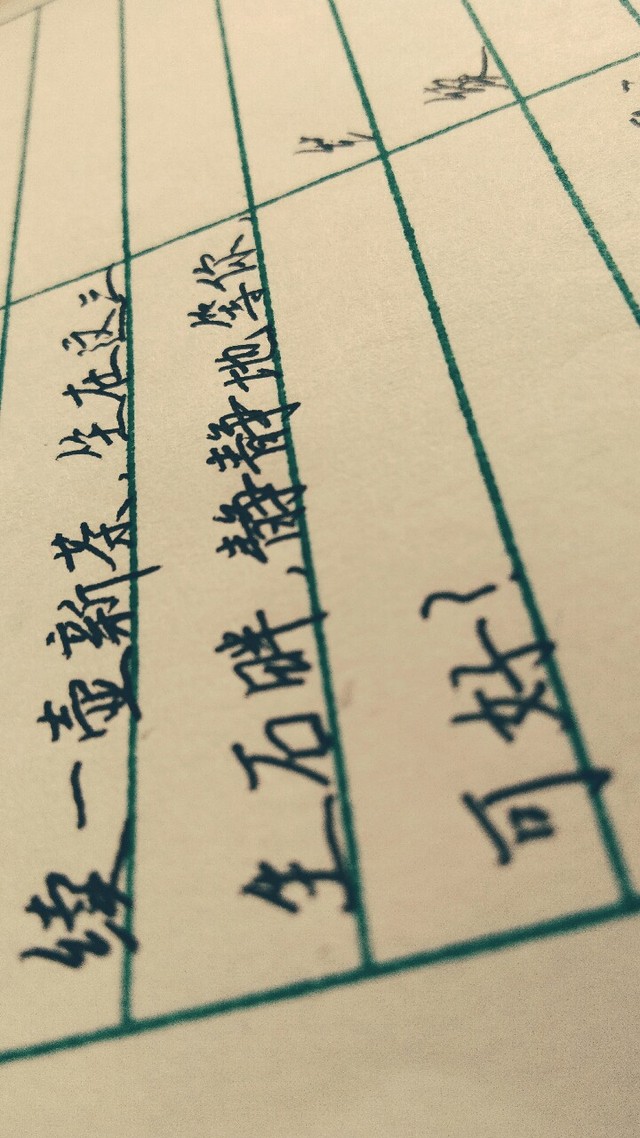 续一壶新茶，坐在这三
生石畔，静静地等你，
可好？